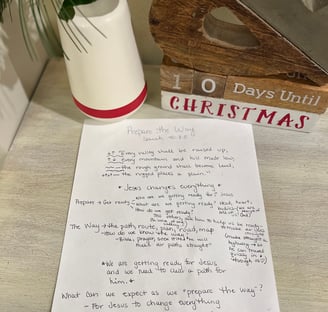 10 Days Until
CHRISTMAS
Prepare the Way
Isaiah 40:3-5
"Every valley shall be raised up,
every mountain and hill made low;
the rough ground shall become level,
the rugged places a plain."
* Jesus changes everything *
Prepare + Get ready - who are we getting ready for? Jesus
- what are we getting ready?
- How do we get ready?
The Way → the path, route, plan, road, map
- How do we know the way?
- Bible, prayer, seek
make our paths straight
* We are getting ready for Jesus
and we need to clear a path for
him. *
What can we expect as we "prepare the way"?
- For Jesus to change everything